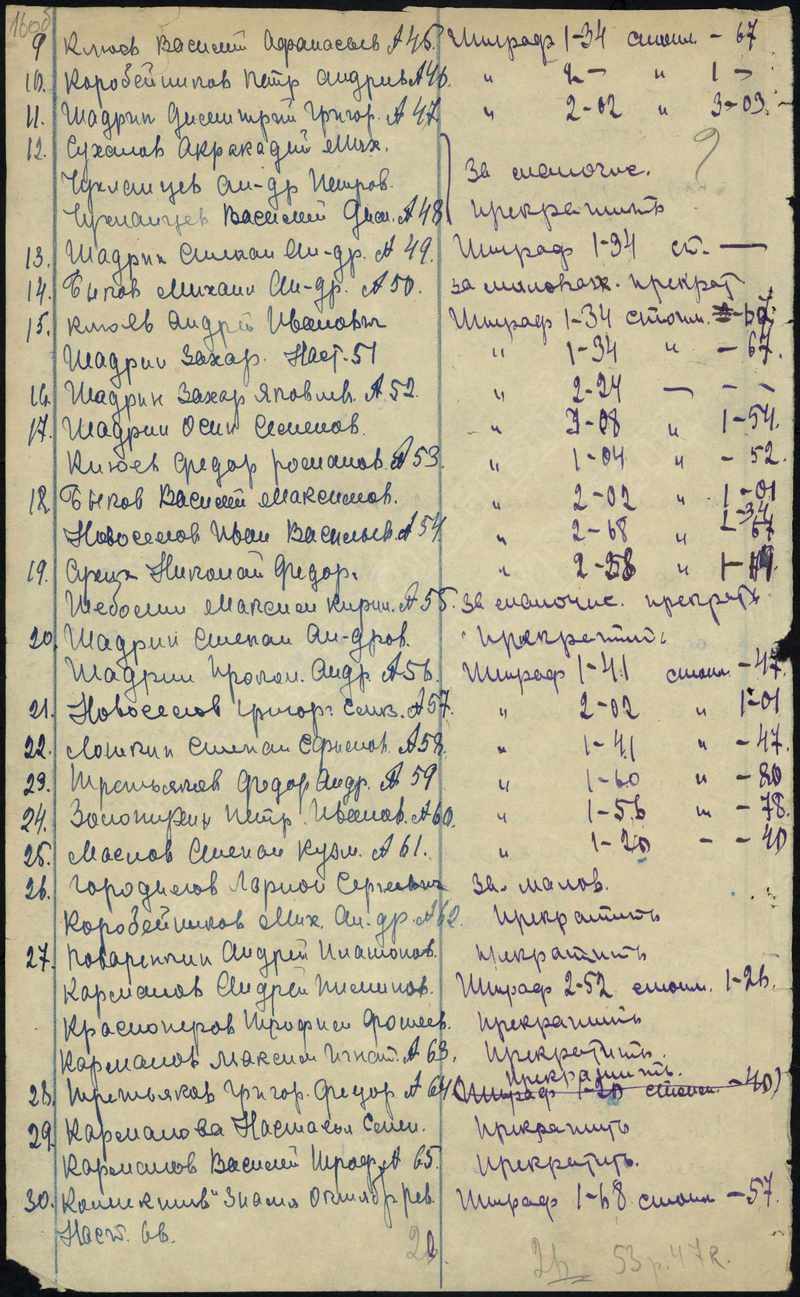 160об
9 Клюев Василий Афанасьев А 45. Штраф 1-34 стоим. - 67
10. Коробейников Петр Андреев А 46. " 2 - " 1 -
11. Шадрин Дмитрий Григор. А 47 " 2-02 " 3-03.
12. Сухалов Мих.
Чухланцев Ал-др Петров. За малочис.
Чухланцев Василий Дм. А 48 прекратить
13. Шадрин Степан Ал-др. А 49. Штраф 1-34 ст. —
14. Быков Михаил Ал-др. А 50. за маловаж. прекрат
15. Клюев Андрей Иванович Штраф 1-34 стоим. - 67.
Шадрин Захар. Наст. 51 " 1-34 " - 67.
16. Шадрин Захар Яковлев. А 52. " 2-24 — - -
17. Шадрин Осип Семенов. " 3-08 " 1-54.
Клюев Федор Романов. А 53. " 1-04 " - 52.
18. Быков Василий Максимов. " 2-02 " 1-01
Новоселов Иван Васильев. А 54. " 2-68 " 1-34
19. Николай Федор. " 2-38 " 1-19.
Максим Кирил. А 55. за малочис. прекрат.
20. Шадрин Степан Ал-дров. прекратить
Шадрин Прокоп. Андр. А 56. Штраф 1-41 стоим - 47.
21. Новоселов Григор. А 57. " 2-02 " 1-01
22. Лошкин Степан Ефимов. А 58. " 1-41 " - 47.
23. Третьяков Федор Андр. А 59 " 1-60 " - 80
24. Петр Иванов. А 60. " 1-56 " - 78.
25. Маслов Степан Кузм. А 61. " 1-20 - - 40
26. Городилов Ларион Сергеевич За малов.
Коробейников Мих. Ал-др. А 62. прекратить
27. Поваренкин Андрей Платонов. прекратить
Карманов Андрей Пименов. Штраф 2-52 стоим. 1-26.
Красноперов Трофим прекратить
Карманов Максим Игнат. А 63. прекратить.
прекратить.
28. Третьяков Григор. Федор А 64 (Штраф 1-20 стоим - 40)
29. Карманова Настасья Семен. прекратить
Карманов Василий Троф. А 65. прекратить.
30. Коллектив "Знамя Октябр. рев. Штраф 1-68 стоим - 57.
Наст. 66.
20 26 53 р. 47 к.